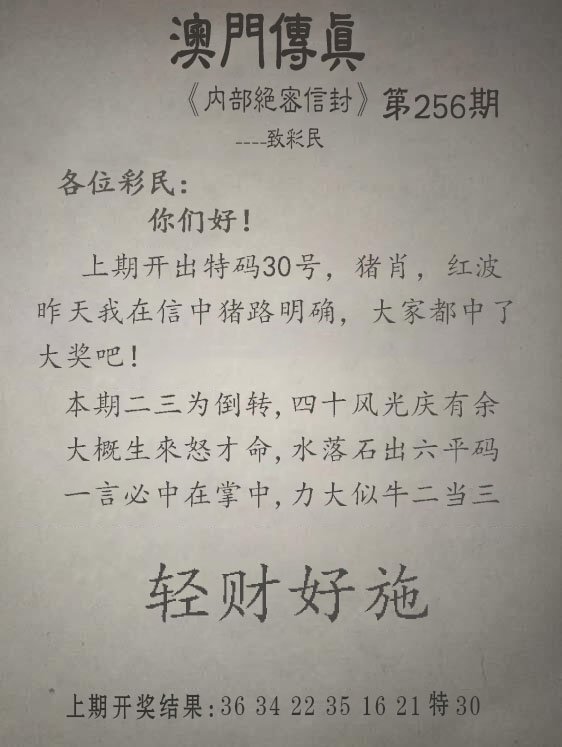 澳門傳真
《内部絕密信封》第256期
----致彩民
各位彩民：
你们好！
上期开出特码30号，猪肖，红波
昨天我在信中猪路明确，大家都中了
大奖吧！
本期二三为倒转,四十风光庆有余
大概生來怒才命,水落石出六平码
一言必中在掌中,力大似牛二当三
轻财好施
上期开奖结果:36 34 22 35 16 21特30